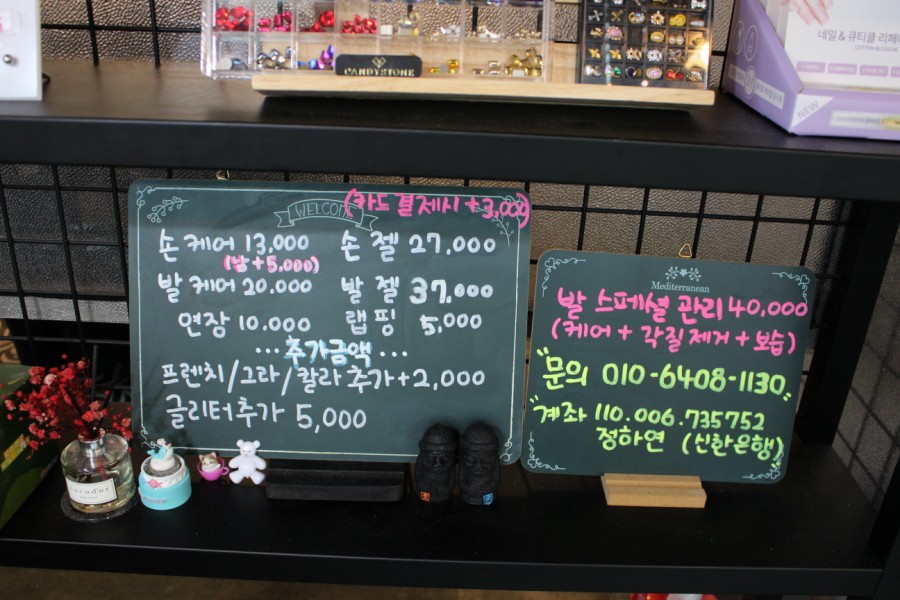 CANDYSTONE
네일 & 큐티클 리페
COTTON BLOSSOM
NEW
WELCOME
(카드 결제시 +3,000)
손 케어 13,000 손 젤 27,000
(남 +5,000)
발 케어 20.000 발 젤 37.000
연장 10.000 랩핑 5,000
... 추가금액 ...
프렌치/그라/칼라 추가+2,000
글리터추가 5,000
Mediterranean
발 스페셜 관리 40,000
(케어 + 각질제거 + 보습)
"문의 010-6408-1130"
"계좌 110.006.735752
정하연 (신한은행)"